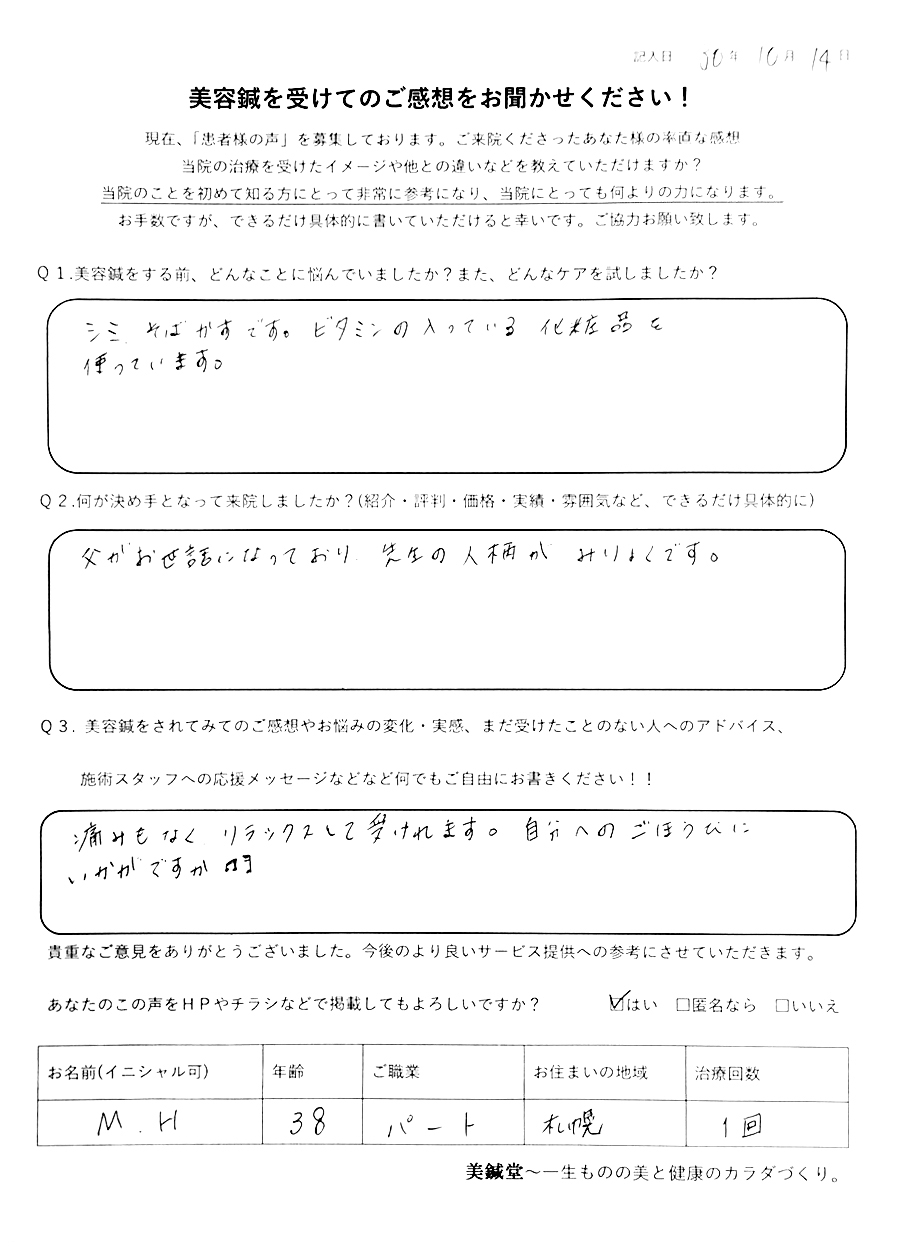 記入日 30年 10月 14日
美容鍼を受けてのご感想をお聞かせください！
現在、「患者様の声」を募集しております。ご来院くださったあなた様の率直な感想
当院の治療を受けたイメージや他との違いなどを教えていただけますか？
当院のことを初めて知る方にとって非常に参考になり、当院にとっても何よりの力になります。
お手数ですが、できるだけ具体的に書いていただけると幸いです。ご協力お願い致します。
Ｑ１.美容鍼をする前、どんなことに悩んでいましたか？また、どんなケアを試しましたか？
シミ、そばかすです。ビタミンの入っている 化粧品を
使っています。
Ｑ２.何が決め手となって来院しましたか？(紹介・評判・価格・実績・雰囲気など、できるだけ具体的に)
父がお世話になっており、先生の人柄が みりょくです。
Ｑ３. 美容鍼をされてみてのご感想やお悩みの変化・実感、まだ受けたことのない人へのアドバイス、
施術スタッフへの応援メッセージなどなど何でもご自由にお書きください！！
痛みもなく、リラックスして受けれます。自分へのごほうびに
いかがですか♫
貴重なご意見をありがとうございました。今後のより良いサービス提供への参考にさせていただきます。
あなたのこの声をＨＰやチラシなどで掲載してもよろしいですか？ ☑はい □匿名なら □いいえ
お名前(イニシャル可) 年齢 ご職業 お住まいの地域 治療回数
M.H 38 パート 札幌 1回
美鍼堂～一生ものの美と健康のカラダづくり。